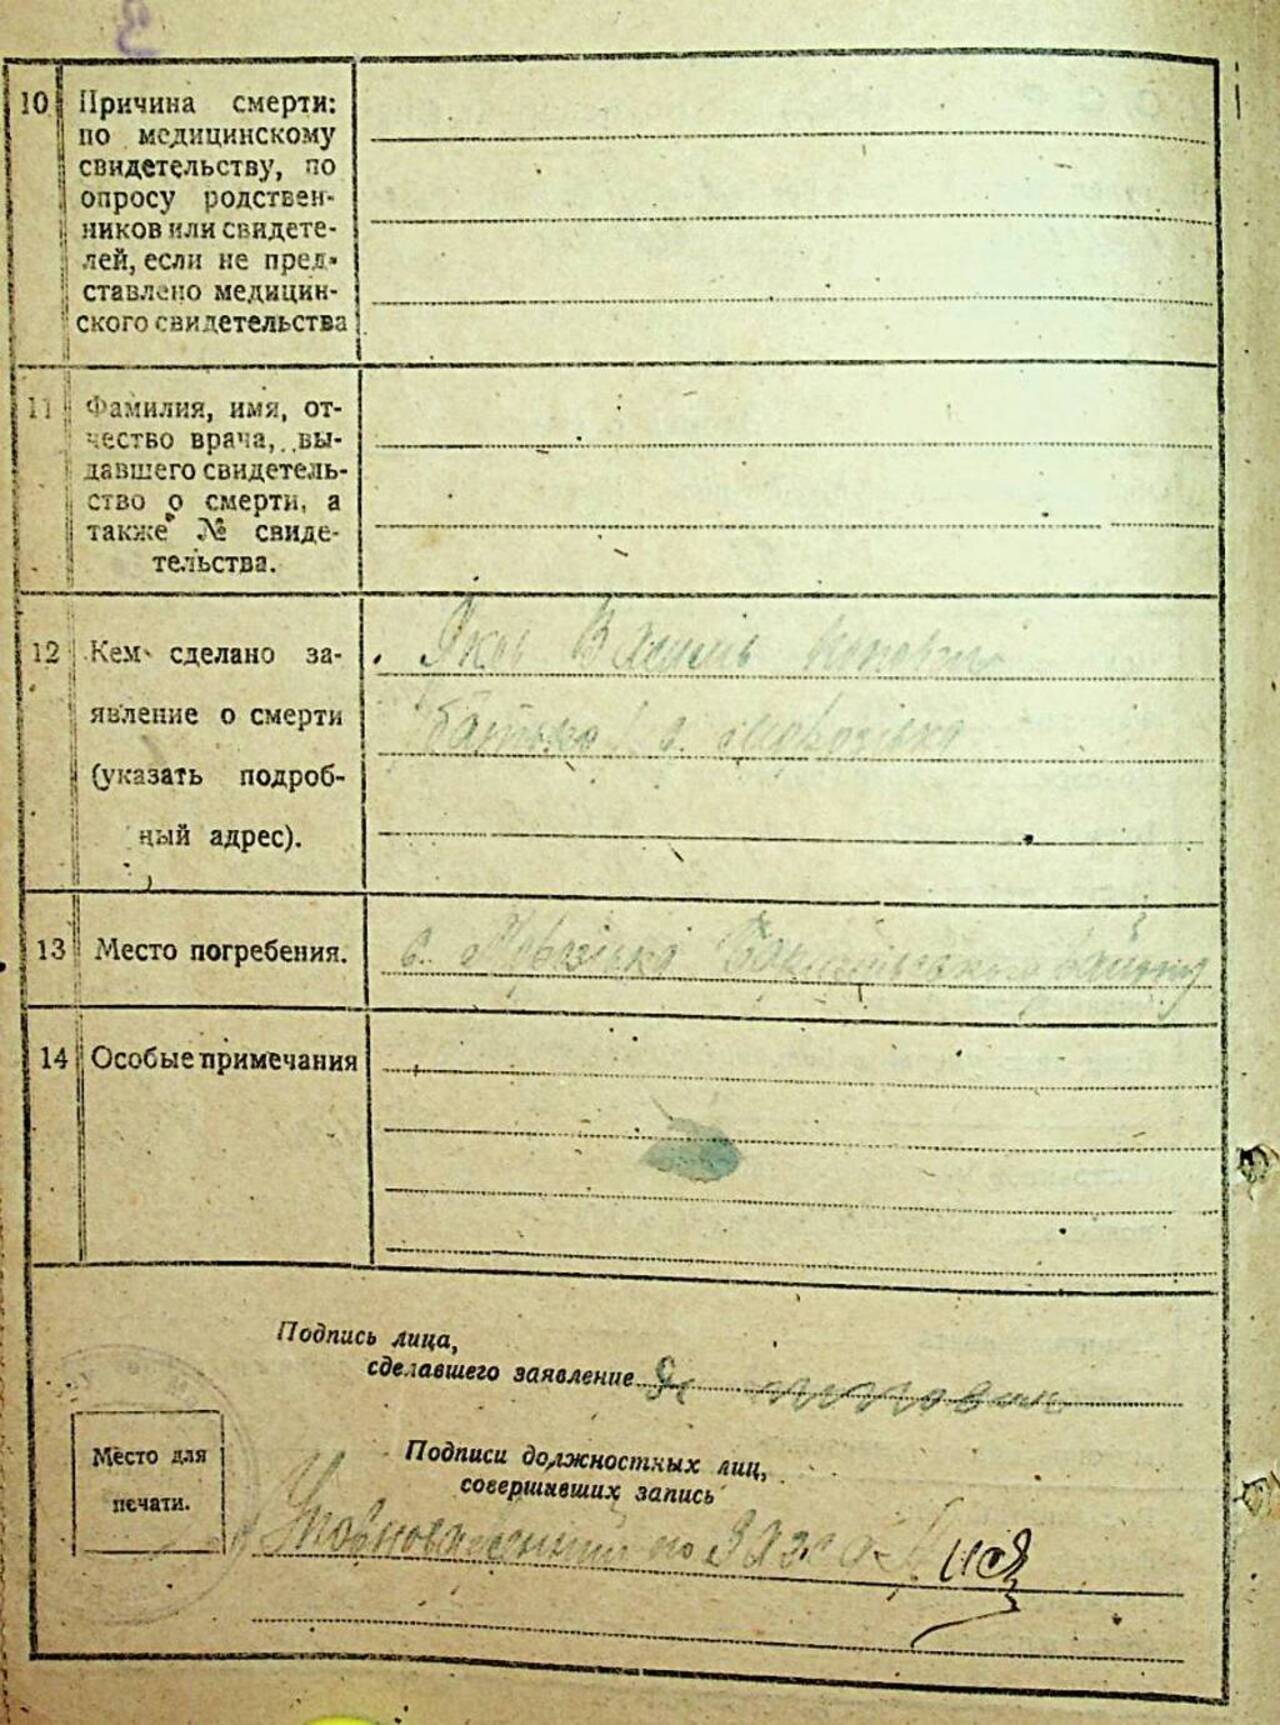 3
10 Причина смерти:
по медицинскому
свидетельству, по
опросу родствен-
ников или свидете-
лей, если не пред-
ставлено медицин-
ского свидетельства
11 Фамилия, имя, от-
чество врача, вы-
давшего свидетель-
ство о смерти, а
также № свиде-
тельства.
12 Кем сделано за-
явление о смерти
(указать подроб-
ный адрес).
Яков
батько с.
13 Место погребения.
с. району
14 Особые примечания
Подпись лица,
сделавшего заявление
Место для
печати.
Подписи должностных лиц,
совершивших запись
по ЗАГС